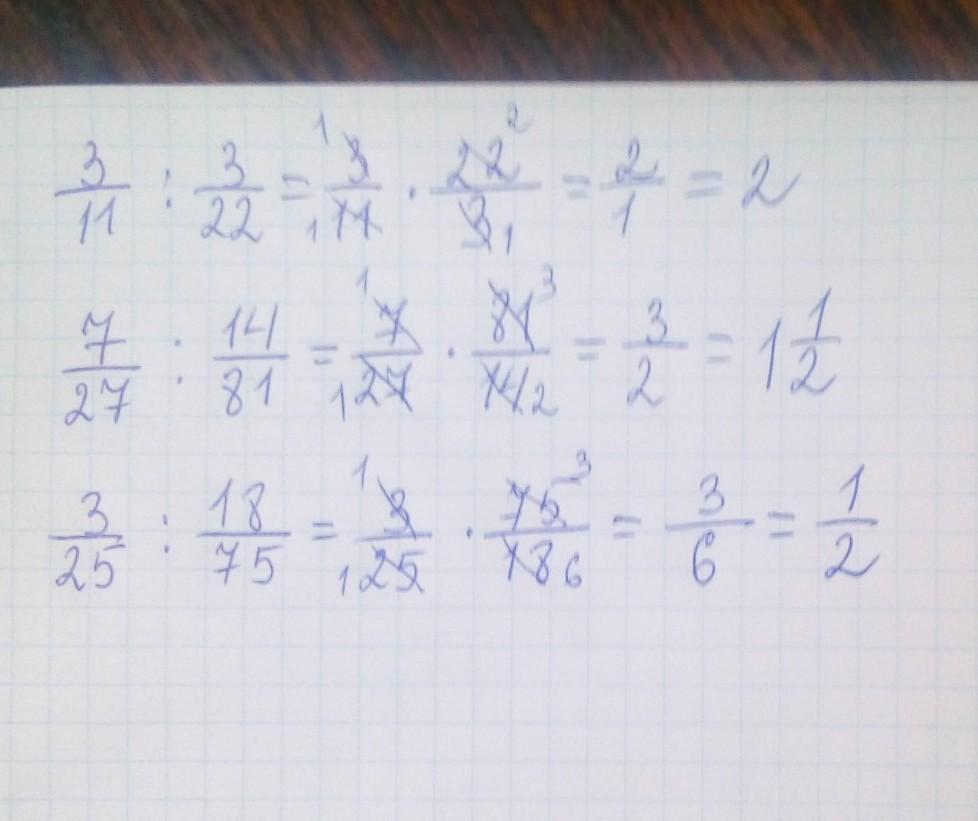 3/11 : 3/22 = 1 3/11 1 · 22 2/3 1 = 2/1 = 2
7/27 : 14/81 = 1 7/27 1 · 81 3/14 2 = 3/2 = 1 1/2
3/25 : 18/75 = 1 3/25 1 · 75 3/18 6 = 3/6 = 1/2